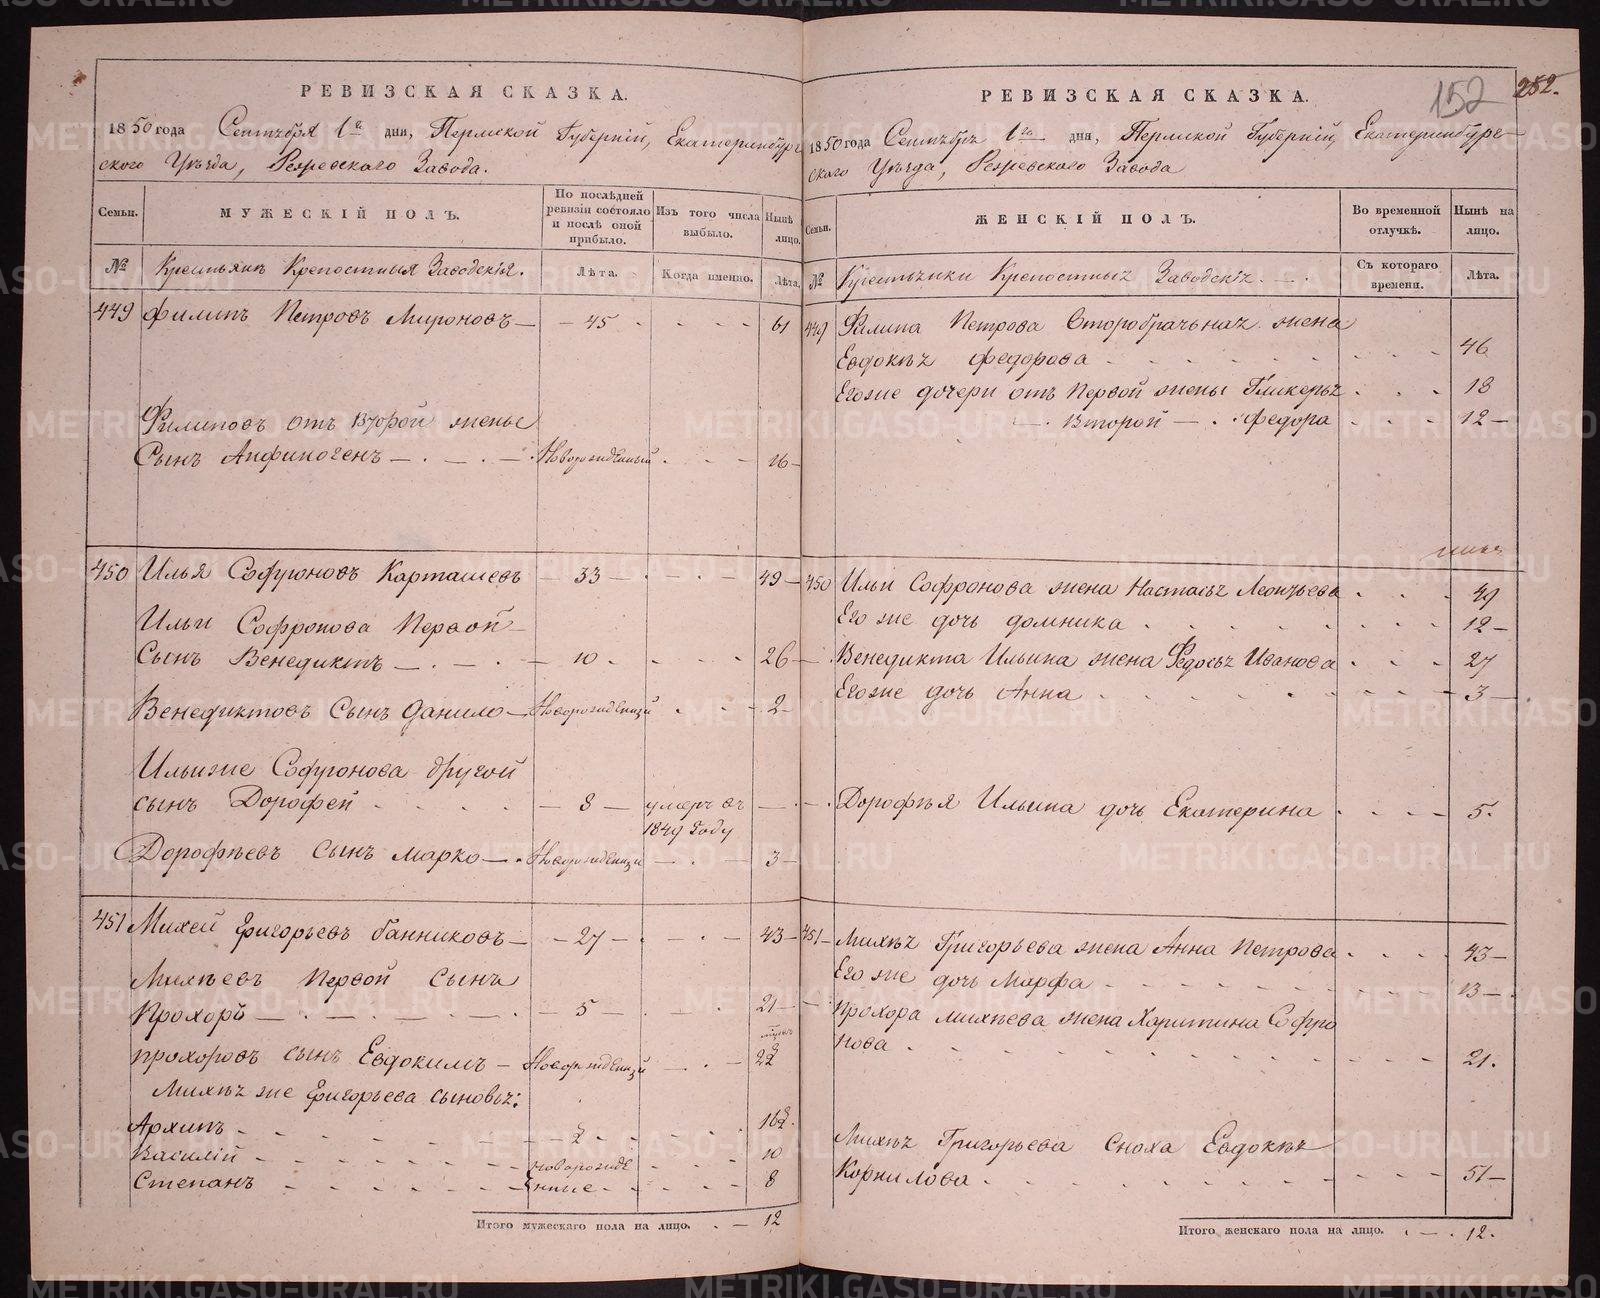 РЕВИЗСКАЯ СКАЗКА.
1850 года Сентября 1го дня, Пермской Губерніи, Екатеринбург-
ского Уѣзда, Режевского Завода.
Семьи.
МУЖЕСКІЙ ПОЛЪ.
По послѣдней ревизіи состояло и послѣ оной прибыло.
Изъ того числа выбыло.
Нынѣ на лицо.
№
Крестьянъ Крепостныя Заводскія.
Лѣта.
Когда именно.
Лѣта.
449 Филипъ Петровъ Мироновъ — 45 61
Филиповъ отъ Второй жены
Сынъ Анфиногенъ — Новорожденный 16
450 Илья Софроновъ Карташевъ 33 49
Ильи Софронова Первой
Сынъ Венедиктъ — 10 26
Венедиктовъ Сынъ Данило — Новорожденный 2
Ильи же Софронова другой
сынъ Дорофей 8 умеръ въ
1849 Году
Дорофѣевъ сынъ Марко — Новорожденный 3
451 Михей Григорьевъ Банниковъ — 27 43
Михѣевъ Первой Сынъ
Прохоръ — 5 21
Прохоровъ сынъ Евдокимъ — Новорожденный
Михѣя же Григорьева сыновья:
Архипъ
Василій новорожде 10
Степанъ нные 8
Итого мужескаго пола на лицо. 12
152 252.
РЕВИЗСКАЯ СКАЗКА.
1850 года Сентября 1го дня, Пермской Губерніи, Екатеринбург-
ского Уѣзда, Режевского Завода
Семьи.
ЖЕНСКІЙ ПОЛЪ.
Во временной отлучкѣ.
Нынѣ на лицо.
№
Крестьянки Крепостныя Заводскія
Съ котораго времени.
Лѣта.
449 Филипа Петрова Второбрачьная жена
Евдокѣя Федорова 46
Его же дочери отъ первой жены Гликерья 18
— Второй — Федора 12
450 Ильи Софронова жена Настасья Леонтьева 49
Его же дочь Домника 12
Венедикта Ильина жена Федосья Иванова 27
Его же дочь Анна 3
Дорофѣя Ильина дочь Екатерина 5.
451 Михѣя Григорьева жена Анна Петрова 43
Его же дочь Марфа 13
Прохора Михѣева жена Харитина Софро
нова 21.
Михѣя Григорьева Сноха Евдокѣя
Корнилова 51
Итого женскаго пола на лицо. 12.
METRIKI.GASO-URAL.RU